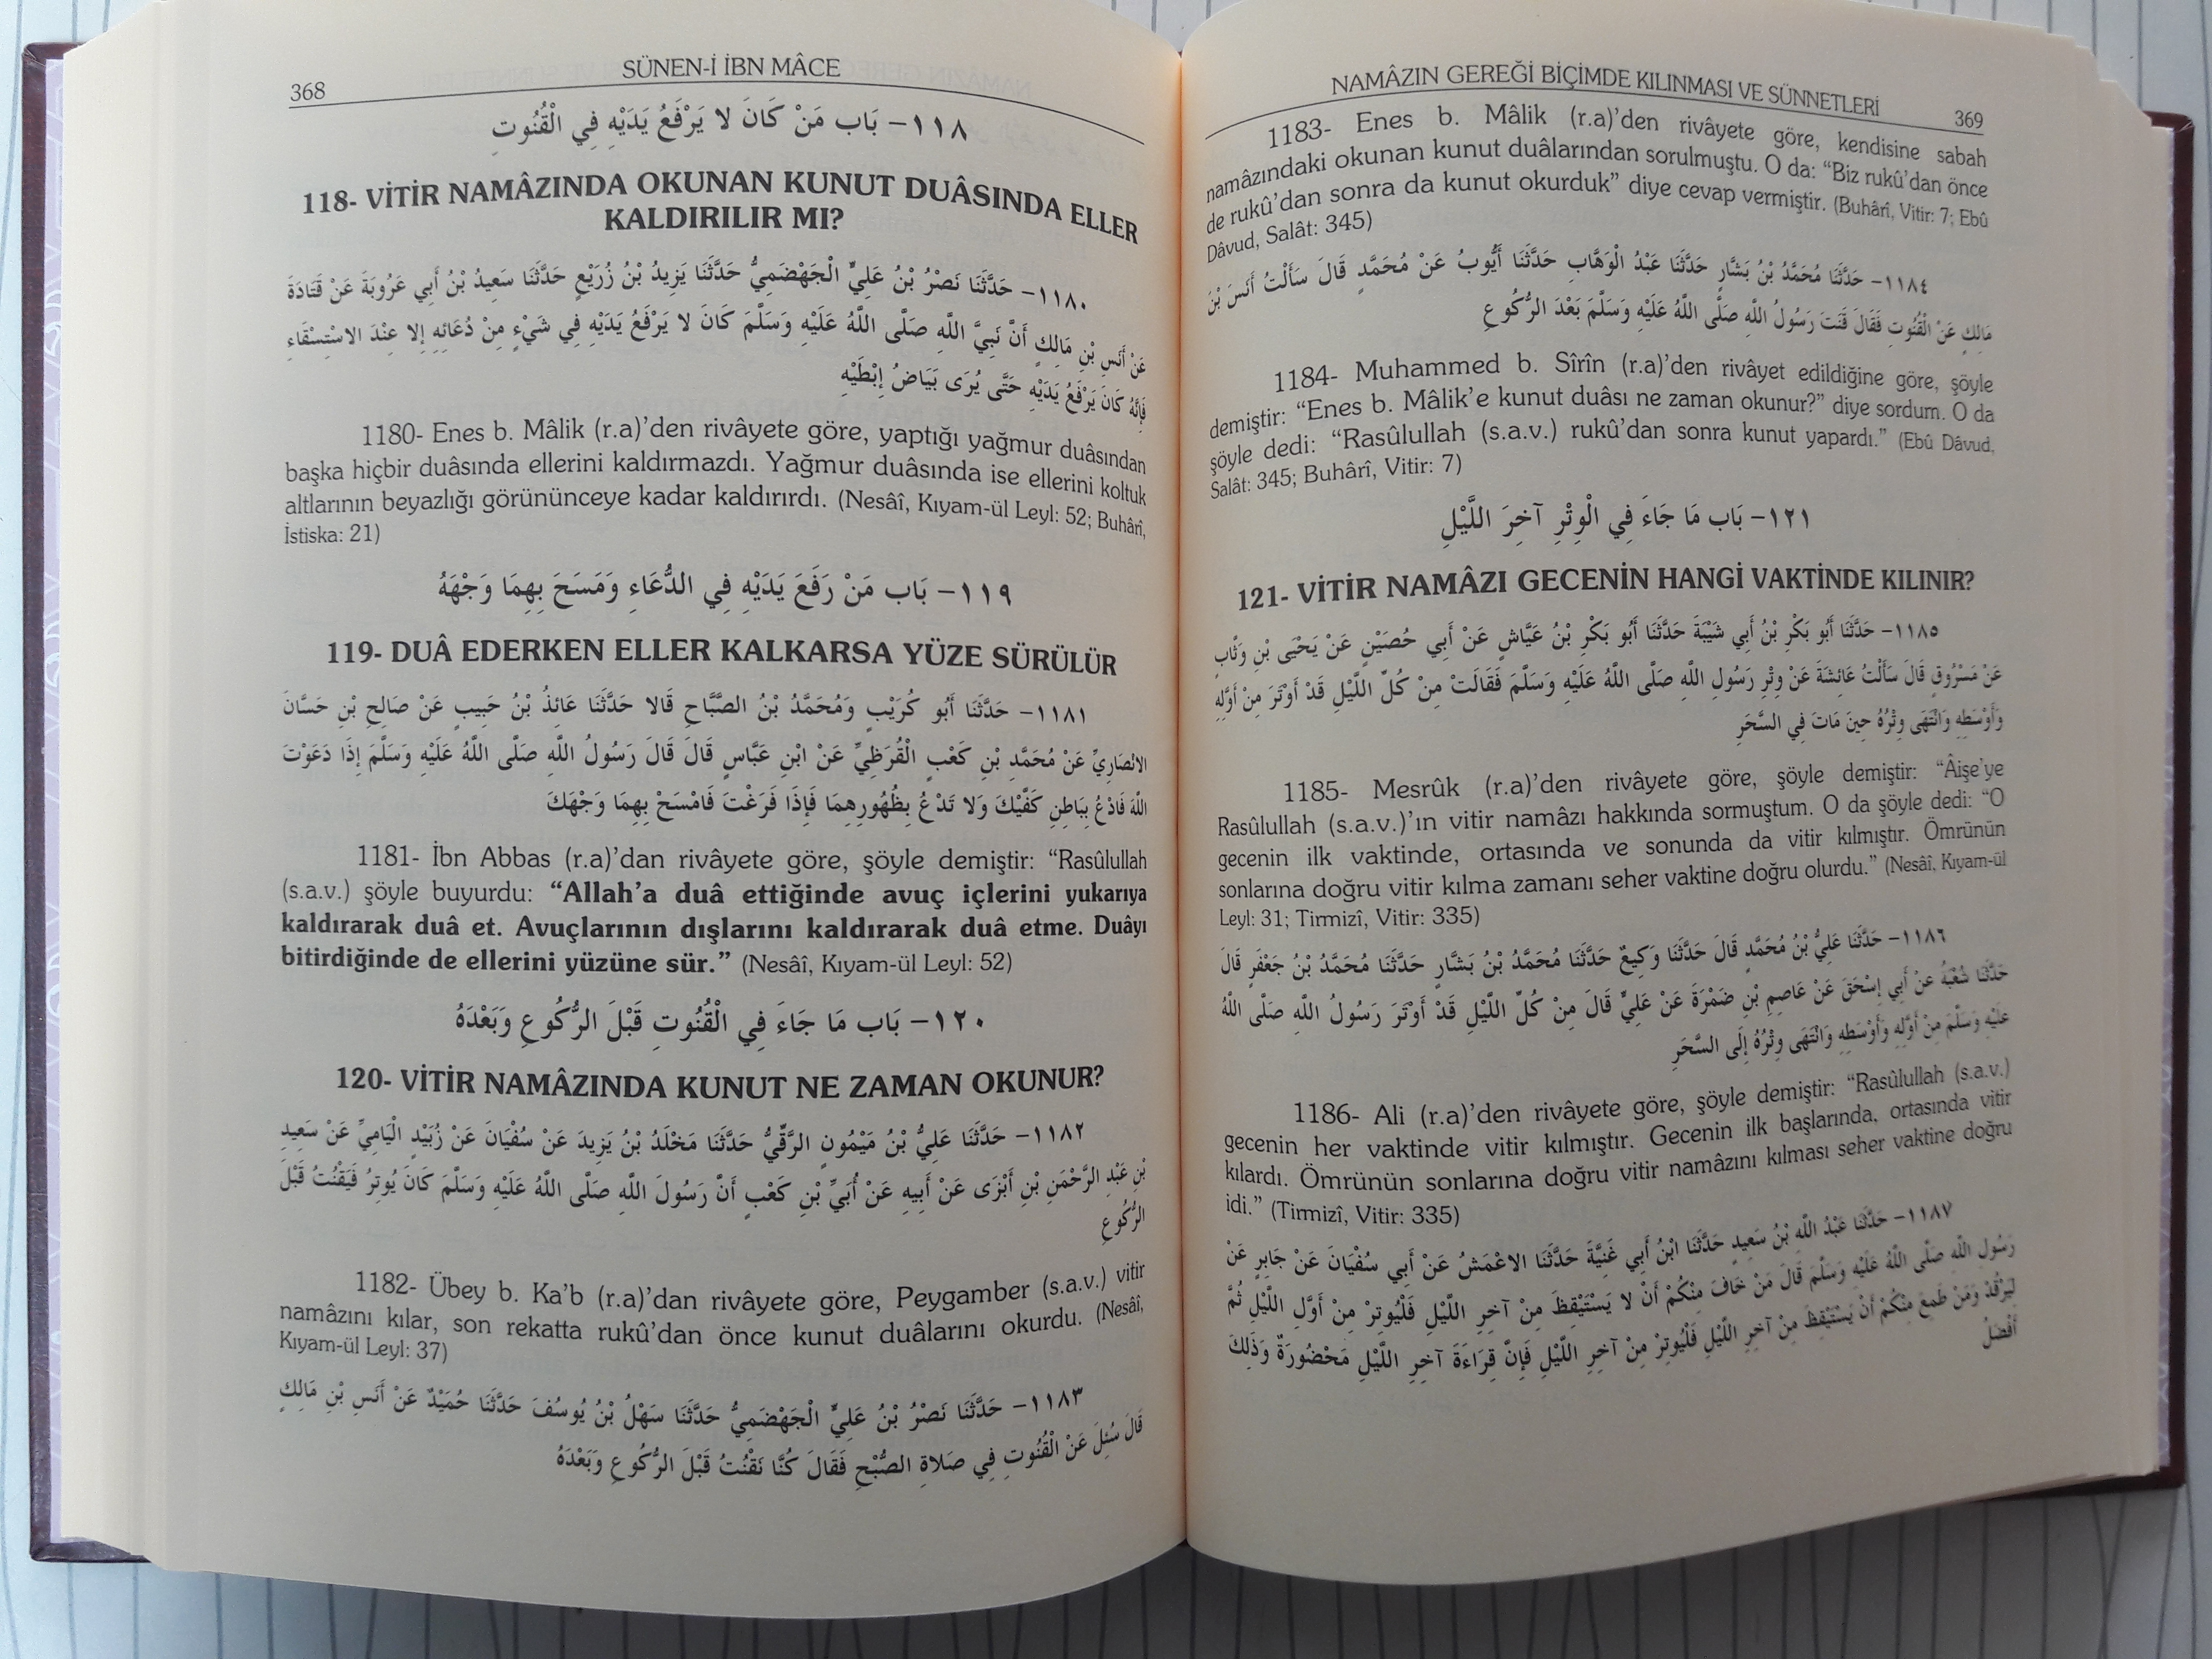 368
SÜNEN-İ İBN MÂCE
١١٨- بَاب مَنْ كَانَ لا يَرْفَعُ يَدَيْهِ فِي الْقُنُوتِ
118- VİTİR NAMÂZINDA OKUNAN KUNUT DUÂSINDA ELLER
KALDIRILIR MI?
١١٨٠- حَدَّثَنَا نَصْرُ بْنُ عَلِيٍّ الْجَهْضَمِيُّ حَدَّثَنَا يَزِيدُ بْنُ زُرَيْعٍ حَدَّثَنَا سَعِيدُ بْنُ أَبِي عَرُوبَةَ عَنْ قَتَادَةَ
عَنْ أَنَسِ بْنِ مَالِكٍ أَنَّ نَبِيَّ اللَّهِ صَلَّى اللَّهُ عَلَيْهِ وَسَلَّمَ كَانَ لا يَرْفَعُ يَدَيْهِ فِي شَيْءٍ مِنْ دُعَائِهِ إِلا عِنْدَ الاسْتِسْقَاءِ
فَإِنَّهُ كَانَ يَرْفَعُ يَدَيْهِ حَتَّى يُرَى بَيَاضُ إِبْطَيْهِ
1180- Enes b. Mâlik (r.a)’den rivâyete göre, yaptığı yağmur duâsından
başka hiçbir duâsında ellerini kaldırmazdı. Yağmur duâsında ise ellerini koltuk
altlarının beyazlığı görününceye kadar kaldırırdı. (Nesâî, Kıyam-ül Leyl: 52; Buhârî,
İstiska: 21)
١١٩- بَاب مَنْ رَفَعَ يَدَيْهِ فِي الدُّعَاءِ وَمَسَحَ بِهِمَا وَجْهَهُ
119- DUÂ EDERKEN ELLER KALKARSA YÜZE SÜRÜLÜR
١١٨١- حَدَّثَنَا أَبُو كُرَيْبٍ وَمُحَمَّدُ بْنُ الصَّبَّاحِ قَالا حَدَّثَنَا عَائِذُ بْنُ حَبِيبٍ عَنْ صَالِحِ بْنِ حَسَّانَ
الانْصَارِيِّ عَنْ مُحَمَّدِ بْنِ كَعْبٍ الْقُرَظِيِّ عَنْ ابْنِ عَبَّاسٍ قَالَ قَالَ رَسُولُ اللَّهِ صَلَّى اللَّهُ عَلَيْهِ وَسَلَّمَ إِذَا دَعَوْتَ
اللَّهَ فَادْعُ بِبَاطِنِ كَفَّيْكَ وَلا تَدْعُ بِظُهُورِهِمَا فَإِذَا فَرَغْتَ فَامْسَحْ بِهِمَا وَجْهَكَ
1181- İbn Abbas (r.a)’dan rivâyete göre, şöyle demiştir: “Rasûlullah
(s.a.v.) şöyle buyurdu: “Allah’a duâ ettiğinde avuç içlerini yukarıya
kaldırarak duâ et. Avuçlarının dışlarını kaldırarak duâ etme. Duâyı
bitirdiğinde de ellerini yüzüne sür.” (Nesâî, Kıyam-ül Leyl: 52)
١٢٠- بَاب مَا جَاءَ فِي الْقُنُوتِ قَبْلَ الرُّكُوعِ وَبَعْدَهُ
120- VİTİR NAMÂZINDA KUNUT NE ZAMAN OKUNUR?
١١٨٢- حَدَّثَنَا عَلِيُّ بْنُ مَيْمُونٍ الرَّقِّيُّ حَدَّثَنَا مَخْلَدُ بْنُ يَزِيدَ عَنْ سُفْيَانَ عَنْ زُبَيْدٍ الْيَامِيِّ عَنْ سَعِيدِ
بْنِ عَبْدِ الرَّحْمَنِ بْنِ أَبْزَى عَنْ أَبِيهِ عَنْ أُبَيِّ بْنِ كَعْبٍ أَنَّ رَسُولَ اللَّهِ صَلَّى اللَّهُ عَلَيْهِ وَسَلَّمَ كَانَ يُوتِرُ فَيَقْنُتُ قَبْلَ
الرُّكُوعِ
1182- Übey b. Ka’b (r.a)’dan rivâyete göre, Peygamber (s.a.v.) vitir
namâzını kılar, son rekatta rukû’dan önce kunut duâlarını okurdu. (Nesâî,
Kıyam-ül Leyl: 37)
١١٨٣- حَدَّثَنَا نَصْرُ بْنُ عَلِيٍّ الْجَهْضَمِيُّ حَدَّثَنَا سَهْلُ بْنُ يُوسُفَ حَدَّثَنَا حُمَيْدٌ عَنْ أَنَسِ بْنِ مَالِكٍ
قَالَ سُئِلَ عَنْ الْقُنُوتِ فِي صَلاةِ الصُّبْحِ فَقَالَ كُنَّا نَقْنُتُ قَبْلَ الرُّكُوعِ وَبَعْدَهُ
NAMÂZIN GEREĞİ BİÇİMDE KILINMASI VE SÜNNETLERİ
369
1183- Enes b. Mâlik (r.a)’den rivâyete göre, kendisine sabah
namâzındaki okunan kunut duâlarından sorulmuştu. O da: “Biz rukû’dan önce
de rukû’dan sonra da kunut okurduk” diye cevap vermiştir. (Buhârî, Vitir: 7; Ebû
Dâvud, Salât: 345)
١١٨٤- حَدَّثَنَا مُحَمَّدُ بْنُ بَشَّارٍ حَدَّثَنَا عَبْدُ الْوَهَّابِ حَدَّثَنَا أَيُّوبُ عَنْ مُحَمَّدٍ قَالَ سَأَلْتُ أَنَسَ بْنَ
مَالِكٍ عَنْ الْقُنُوتِ فَقَالَ قَنَتَ رَسُولُ اللَّهِ صَلَّى اللَّهُ عَلَيْهِ وَسَلَّمَ بَعْدَ الرُّكُوعِ
1184- Muhammed b. Sîrîn (r.a)’den rivâyet edildiğine göre, şöyle
demiştir: “Enes b. Mâlik’e kunut duâsı ne zaman okunur?” diye sordum. O da
şöyle dedi: “Rasûlullah (s.a.v.) rukû’dan sonra kunut yapardı.” (Ebû Dâvud,
Salât: 345; Buhârî, Vitir: 7)
١٢١- بَاب مَا جَاءَ فِي الْوِتْرِ آخِرَ اللَّيْلِ
121- VİTİR NAMÂZI GECENİN HANGİ VAKTİNDE KILINIR?
١١٨٥- حَدَّثَنَا أَبُو بَكْرِ بْنُ أَبِي شَيْبَةَ حَدَّثَنَا أَبُو بَكْرِ بْنُ عَيَّاشٍ عَنْ أَبِي حُصَيْنٍ عَنْ يَحْيَى بْنِ وَثَّابٍ
عَنْ مَسْرُوقٍ قَالَ سَأَلْتُ عَائِشَةَ عَنْ وِتْرِ رَسُولِ اللَّهِ صَلَّى اللَّهُ عَلَيْهِ وَسَلَّمَ فَقَالَتْ مِنْ كُلِّ اللَّيْلِ قَدْ أَوْتَرَ مِنْ أَوَّلِهِ
وَأَوْسَطِهِ وَانْتَهَى وِتْرُهُ حِينَ مَاتَ فِي السَّحَرِ
1185- Mesrûk (r.a)’den rivâyete göre, şöyle demiştir: “Âişe’ye
Rasûlullah (s.a.v.)’ın vitir namâzı hakkında sormuştum. O da şöyle dedi: “O
gecenin ilk vaktinde, ortasında ve sonunda da vitir kılmıştır. Ömrünün
sonlarına doğru vitir kılma zamanı seher vaktine doğru olurdu.” (Nesâî, Kıyam-ül
Leyl: 31; Tirmizî, Vitir: 335)
١١٨٦- حَدَّثَنَا عَلِيُّ بْنُ مُحَمَّدٍ قَالَ حَدَّثَنَا وَكِيعٌ حَدَّثَنَا مُحَمَّدُ بْنُ بَشَّارٍ حَدَّثَنَا مُحَمَّدُ بْنُ جَعْفَرٍ قَالَ
حَدَّثَنَا شُعْبَةُ عَنْ أَبِي إِسْحَقَ عَنْ عَاصِمِ بْنِ ضَمْرَةَ عَنْ عَلِيٍّ قَالَ مِنْ كُلِّ اللَّيْلِ قَدْ أَوْتَرَ رَسُولُ اللَّهِ صَلَّى اللَّهُ
عَلَيْهِ وَسَلَّمَ مِنْ أَوَّلِهِ وَأَوْسَطِهِ وَانْتَهَى وِتْرُهُ إِلَى السَّحَرِ
1186- Ali (r.a)’den rivâyete göre, şöyle demiştir: “Rasûlullah (s.a.v.)
gecenin her vaktinde vitir kılmıştır. Gecenin ilk başlarında, ortasında vitir
kılardı. Ömrünün sonlarına doğru vitir namâzını kılması seher vaktine doğru
idi.” (Tirmizî, Vitir: 335)
١١٨٧- حَدَّثَنَا عَبْدُ اللَّهِ بْنُ سَعِيدٍ حَدَّثَنَا ابْنُ أَبِي غَنِيَّةَ حَدَّثَنَا الاعْمَشُ عَنْ أَبِي سُفْيَانَ عَنْ جَابِرٍ عَنْ
رَسُولِ اللَّهِ صَلَّى اللَّهُ عَلَيْهِ وَسَلَّمَ قَالَ مَنْ خَافَ مِنْكُمْ أَنْ لا يَسْتَيْقِظَ مِنْ آخِرِ اللَّيْلِ فَلْيُوتِرْ مِنْ أَوَّلِ اللَّيْلِ ثُمَّ
لِيَرْقُدْ وَمَنْ طَمِعَ مِنْكُمْ أَنْ يَسْتَيْقِظَ مِنْ آخِرِ اللَّيْلِ فَلْيُوتِرْ مِنْ آخِرِ اللَّيْلِ فَإِنَّ قِرَاءَةَ آخِرِ اللَّيْلِ مَحْضُورَةٌ وَذَلِكَ
أَفْضَلُ